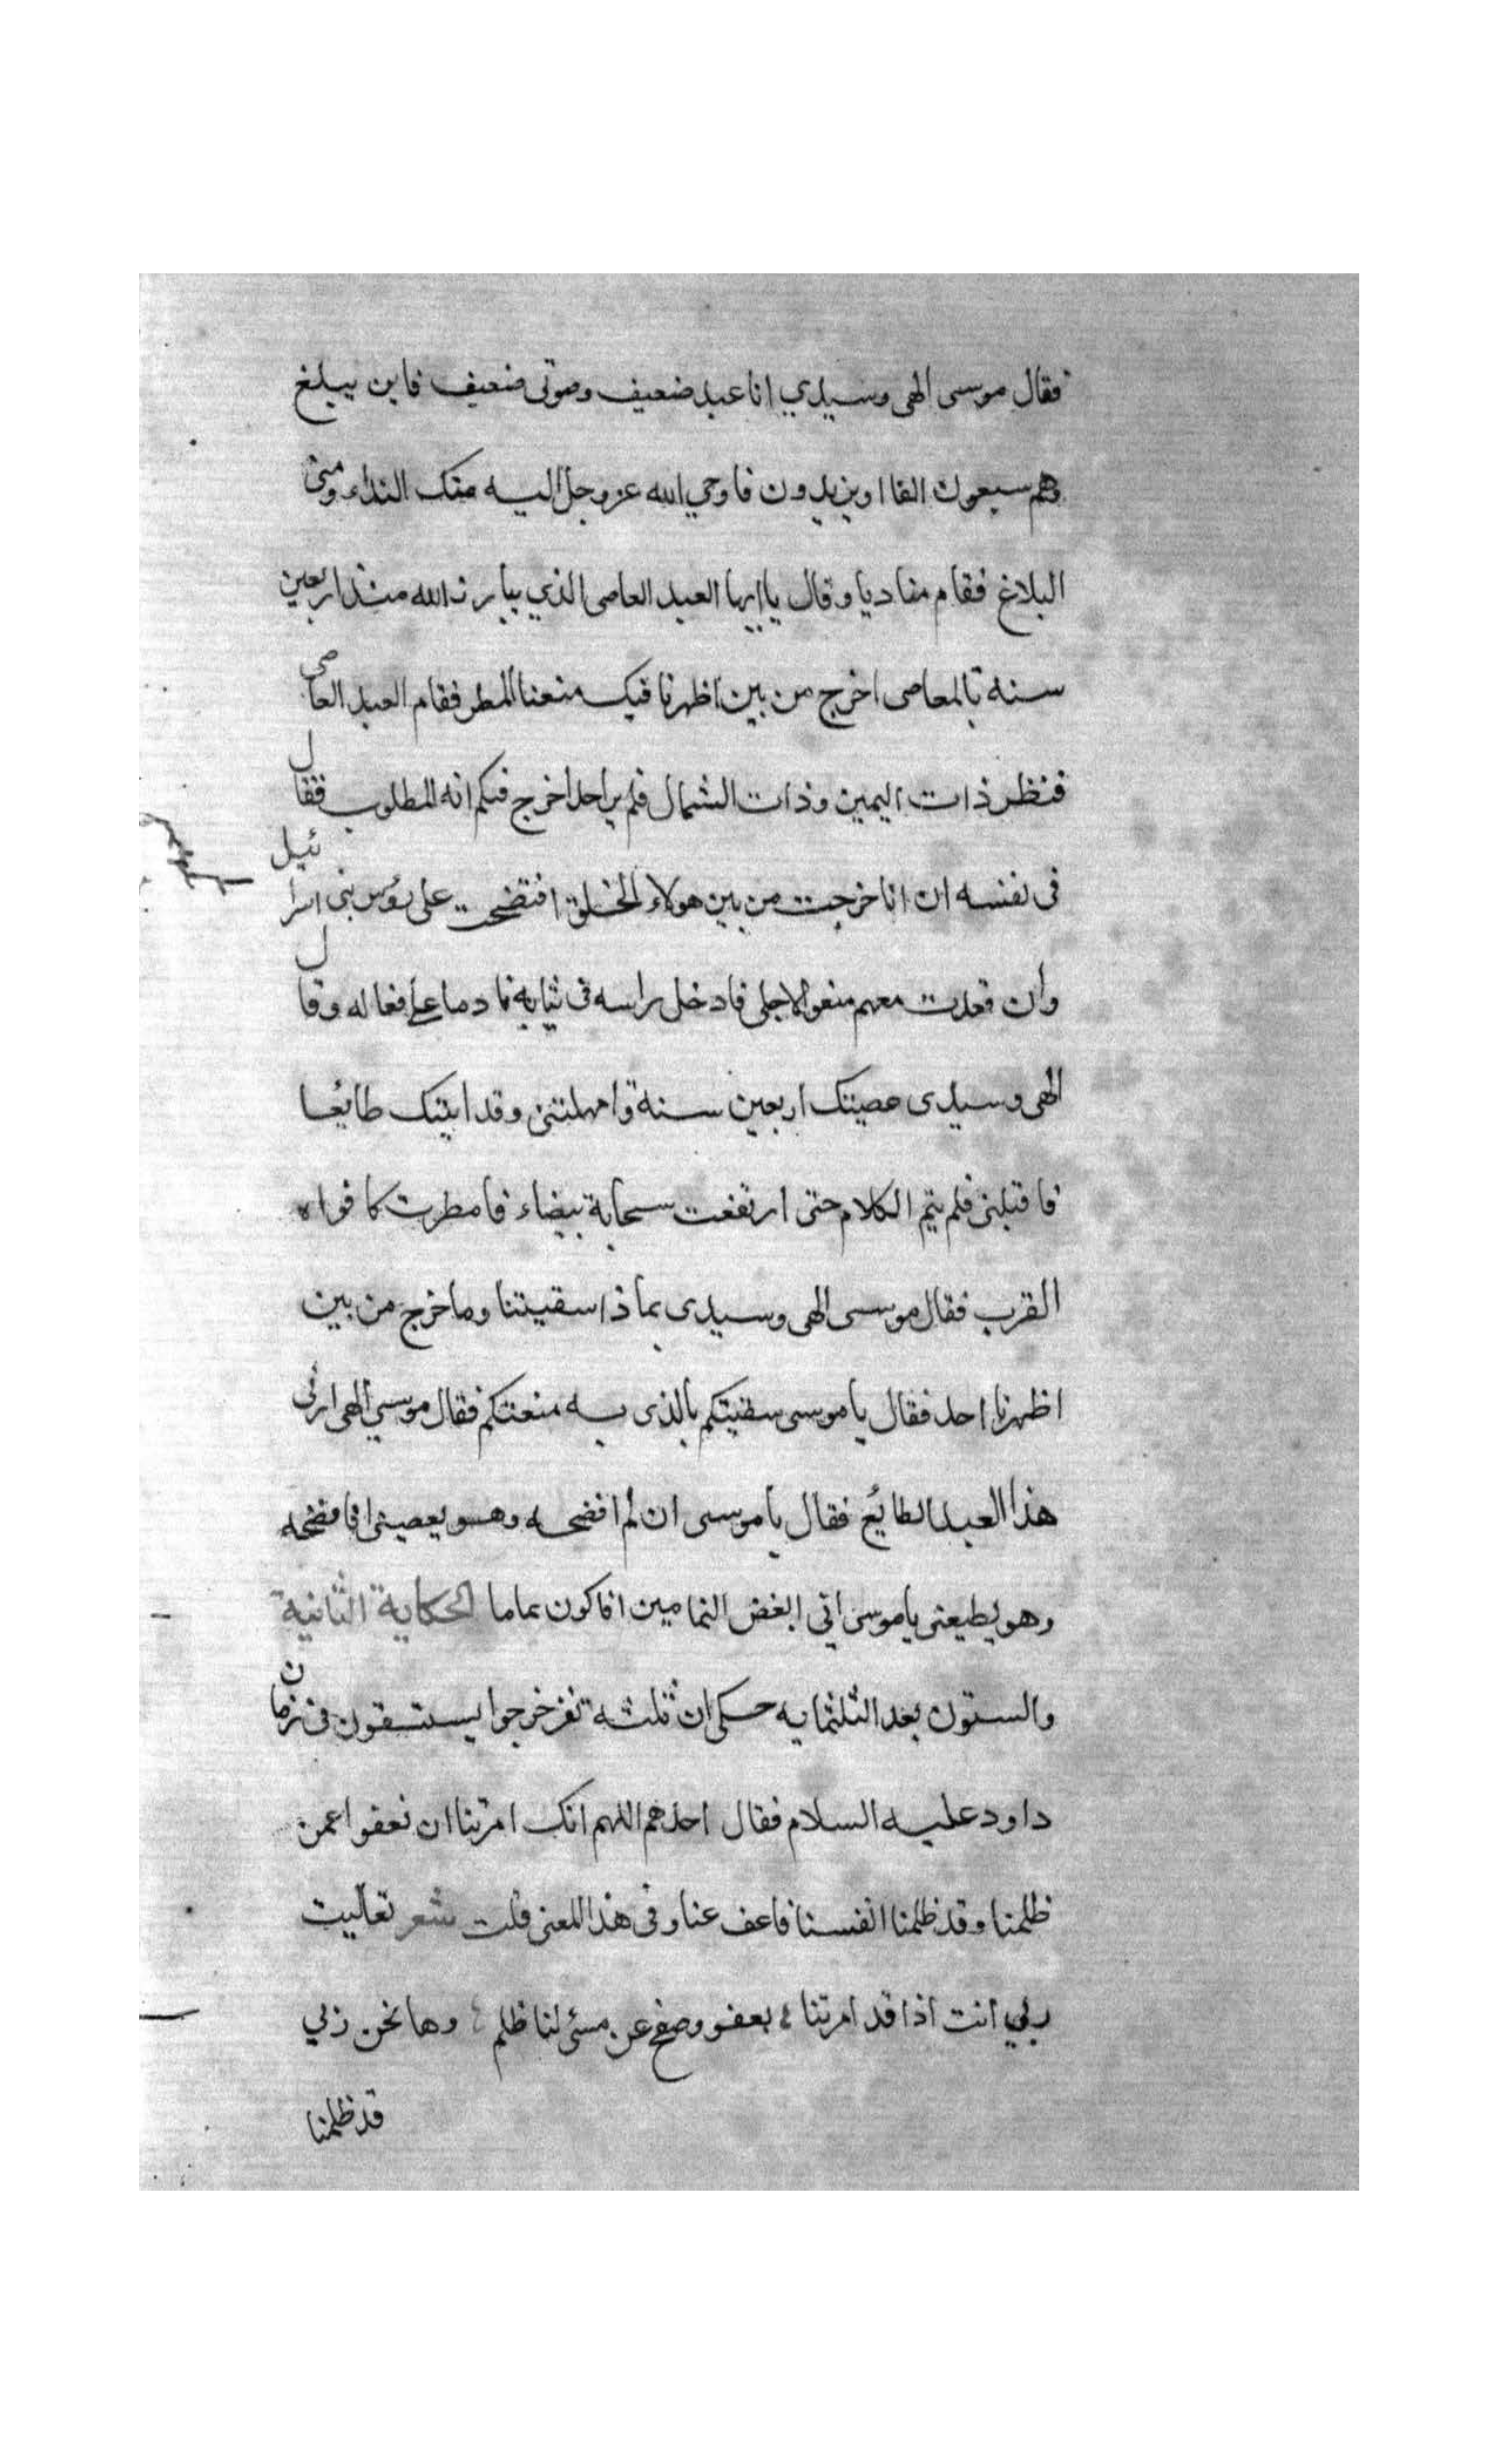 فقال موسى الهى وسيدي انا عبد ضعيف وصوتى ضعيف فاين يبلغ
وهم سبعون الفا او يزيدون فاوحي الله عز وجل اليه منك النداء ومني
البلاغ فقام مناديا وقال يا ايها العبد العاصى الذي يبارز الله منذ اربعين
سنه بالمعاصى اخرج من بين اظهرنا فبك منعنا المطر فقام العبد العاصي
فنظر ذات اليمين وذات الشمال فلم ير احدا خرج فعلم انه المطلوب فقال
فى نفسه ان انا خرجت من بين هولاء الخلق افتضحت على رؤس بنى اسرائيل
وان قعدت معهم منعوا لاجلى فادخل راسه فى ثيابه نادما على فعاله وقال
الهى وسيدى عصيتك اربعين سنة وامهلتنى وقد اتيتك طايعا
فاقبلنى فلم يتم الكلام حتى ارتفعت سحابة بيضاء فامطرت كافواه
القرب فقال موسى الهى وسيدى بماذا سقيتنا وما خرج من بين
اظهرنا احد فقال يا موسى سقيتكم بالذى به منعتكم فقال موسي الهى ارنى
هذا العبد الطايع فقال يا موسى ان لم افضحه وهو يعصينى افافضحه
وهو يطيعنى يا موسى انى ابغض النمامين افاكون نماما الحكاية الثانية
والستون بعد الثلثمايه حكى ان ثلثه نفر خرجوا يستسقون فى زمان
داود عليه السلام فقال احدهم اللهم انك امرتنا ان نعفوا عمن
ظلمنا وقد ظلمنا انفسنا فاعف عنا وفى هذا المعنى قلت شعر تعاليت
ربي انت اذا قد امرتنا بعفو وصفح عن مسئ لنا ظلم وها نحن ربي
قد ظلمنا